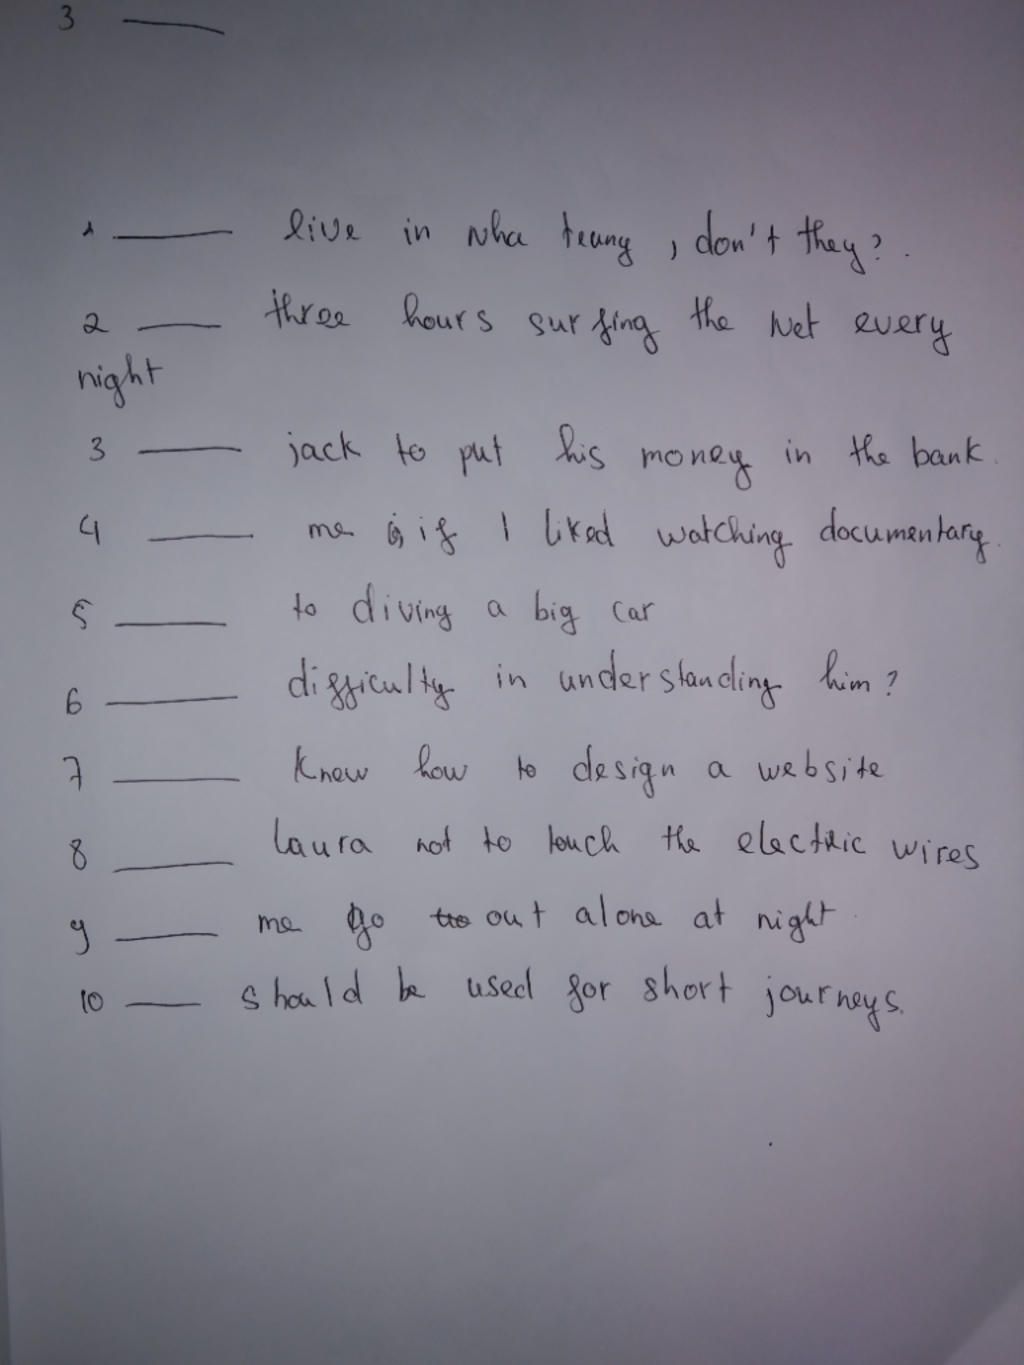 3 ____
1 ____ live in Nha trang, don't they?.
2 ____ three hours surfing the Net every
night
3 ____ jack to put his money in the bank.
4 ____ me if I liked watching documentary.
5 ____ to diving a big car
6 ____ difficulty in understanding him?
7 ____ Know how to design a website
8 ____ Laura not to touch the electric wires
9 ____ me go out alone at night.
10 ____ should be used for short journeys.